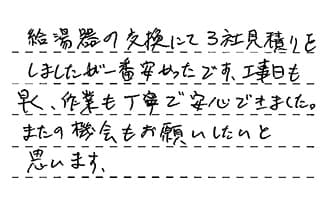 給湯器の交換にて3社見積りを
しましたが一番安かったです、工事日も
早く、作業も丁寧で安心できました。
またの機会もお願いしたいと
思います、